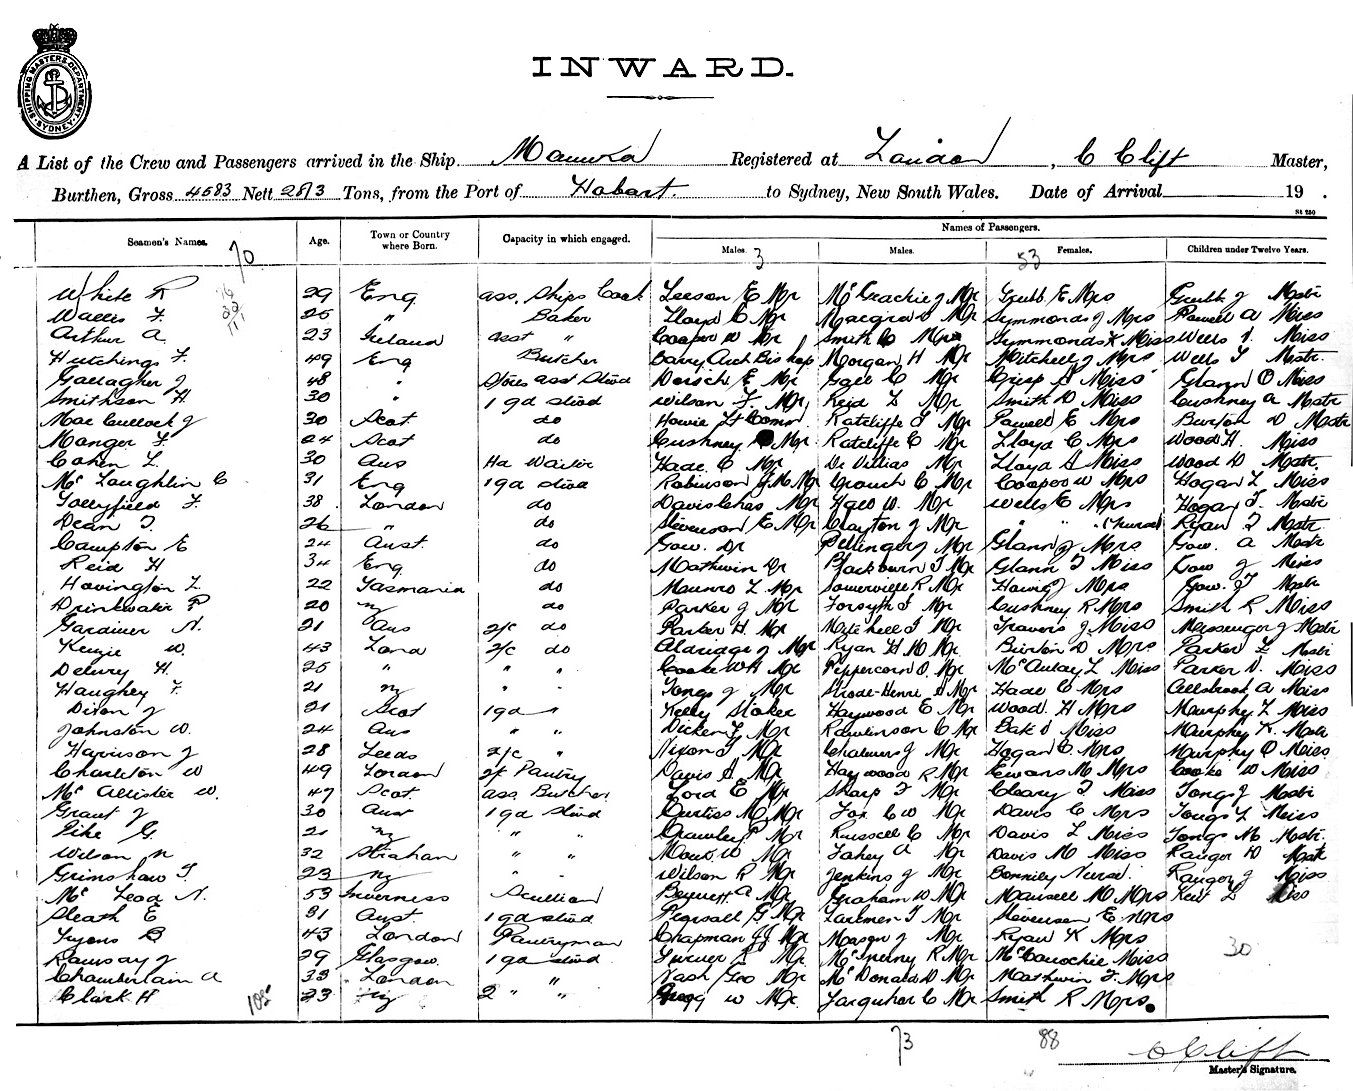 SHIPPING MASTERS DEPARTMENT SYDNEY
INWARD.
A List of the Crew and Passengers arrived in the Ship Manuka Registered at London, C Clift Master,
Burthen, Gross 4583 Nett Tons, from the Port of Hobart to Sydney, New South Wales. Date of Arrival 19 .
Seamen's Names. Age. Town or Country where Born. Capacity in which engaged. Names of Passengers.
Males. Males. Females. Children under Twelve Years.
70 3 53
White R 29 Eng ass. Ships Cook Leeson E Mr McGeachie J Mr Grubb E Mrs Grubb J Mastr
Wallis F. 25 " Baker Lloyd C Mr Macgra Mr Symmonds J Mrs Powell A Miss
Arthur A. 23 Ireland asst " Cooper W Mr Smith C Mr Symmonds K Miss Wells Miss
Hutchings F. 49 Eng Butcher Barry Arch Bishop Morgan H Mr Mitchell J Mrs Wells T Mastr
Gallagher J 48 " Stores asst Stwd Dorsch E Mr C Mr Crisp A Miss Glann O Miss
Smithson H. 30 " 1 gd stwd Wilson F Mr Reid L Mr Smith D Miss Cushney A Mastr
Mac Cullock J 30 Scot do Howie Lt Comm Ratcliffe T Mr Powell E Mrs Burton D Mastr
Manger F. 24 Scot do Cushney Mr Ratcliffe C Mr Lloyd C Mrs Wood H. Miss
Cohen L. 30 Aus Hd Waiter Hade C Mr De Villias Mr Lloyd A Miss Wood D Mastr.
Mc Loughlin C 31 Eng 1 gd stwd Robinson J Mr Crouch C Mr Cooper W Mrs Hogan L Miss
Tollyfield F. 38 London do Davis Chas Mr W. Mr Wells E Mrs Hogan T. Mastr
Dean T. 26 " do Stevenson E Mr Clayton J Mr " " (Nurse) Ryan T Mastr
Campton E 24 Aust. do Gow. Dr Pillinger J Mr Glann J Mrs Gow. A Mastr
Reid H 34 Eng do Mathwin Dr Blackburn T Mr Glann T Miss Gow J Miss
Hovington L 22 Tasmania do Munro L Mr Somerville R Mr J Mrs Gow. T Mastr
Drinkwater P 20 nz do Parker J Mr Forsyth T Mr Cushney R Mrs Smith R Miss
Gardiner A. 21 Aus 2/c do Parker H. Mr Mitchell T Mr Travers J Miss Messenger J Mastr
Kenzie W. 43 Lond 2/c do Aldridge J Mr Ryan H Mr Burton D Mrs Parker L Mastr
H. 25 " " " Cooke W H Mr Peppercorn O. Mr McAulay L Miss Parker D. Miss
Haughey F. 21 nz " " Tongs J Mr Strode-Henre S Mr Hade C Mrs A Miss
Dixon J 21 Scot 1 gd " Kelly Stoker Haywood E Mr Wood. H Mrs Murphy L Miss
Johnston W. 24 Aus " " Dicker F. Mr Rawlinson C Mr Miss Murphy K. Mastr
Harrison J 28 Leeds 2/c " Nixon T Mr Chalmers J Mr Hogan C Mrs Murphy O Miss
Charleton W 49 London 2/c Pantry Davis A Mr Haywood R Mr Ewans M Mrs Cooke W Miss
Mc Allister W. 47 Scot ass. Butcher Lord E Mr Sharp T Mr Cleary T Miss Tongs J Mastr
Grant J 30 Aust 1 gd stwd Curtiss Mr Fox C W Mr Davis C Mrs Tongs L Miss
G. 21 nz " " Crawley Mr Russell C Mr Davis L Miss Tongs M Mastr.
Wilson N 32 Strahan " " W Mr Fahey A Mr Davis M Miss Ranger D Mastr
Grimshaw T. 23 nz " " Wilson R Mr Jenkins J Mr Nurse Ranger J Miss
Mc Leod N. 53 Inverness Scullion Bennett A. Mr Graham W Mr Maunsell M Mrs L Miss
Sleath E 31 Aust. 1 gd stwd Pearsall G. Mr T Mr Stevenson E Mrs
Lyons B 43 London Pantryman Chapman J J Mr Mason J Mr Ryan K Mrs
Ramsay J 29 Glasgow. 1 gd stwd Turner Mr R Mr Miss 30
Chamberlain A 33 London " " Nash Geo Mr McDonald D Mr Mathwin F. Mrs
Clark H 23 nz 2 " " Gregg W Mr Farquhar C Mr Smith R Mrs
73 88
C Clift
Master's Signature.